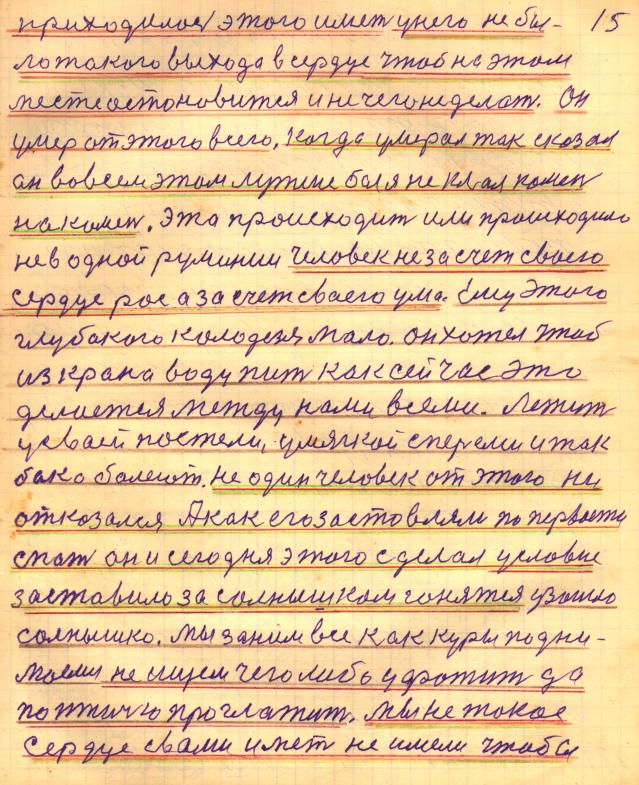 приходилося этого имет у него не бы- 15
ло такого выхода в сердце чтоб на этом
месте остоновится и ничего не делат. Он
умер от этого всего. Когда умерал так сказал
он во всем этом лутше был не клал комен
на комен. Эта происходит или происходило
не в одной румынии человек не за счет своего
сердце рос а за счет сваего ума. Ему этого
глубакого колодезя мало. он хотел чтоб
из крана воду пит как сейчас это
делается между нами всеми. Лежит
у сваей постели, у мягкой с перами и так
бако болеют. не один человек от этого ни
откозался А как его застовляли по первости
спат он и сегодня этого сделал условие
заставило за солнышком гонятся узошло
солнышко. мы за ним все как куры подни-
маемся не ищем чего либо ухватит да
по птичю проглатит. мы не такое
сердце с вами имет не имели чтобы